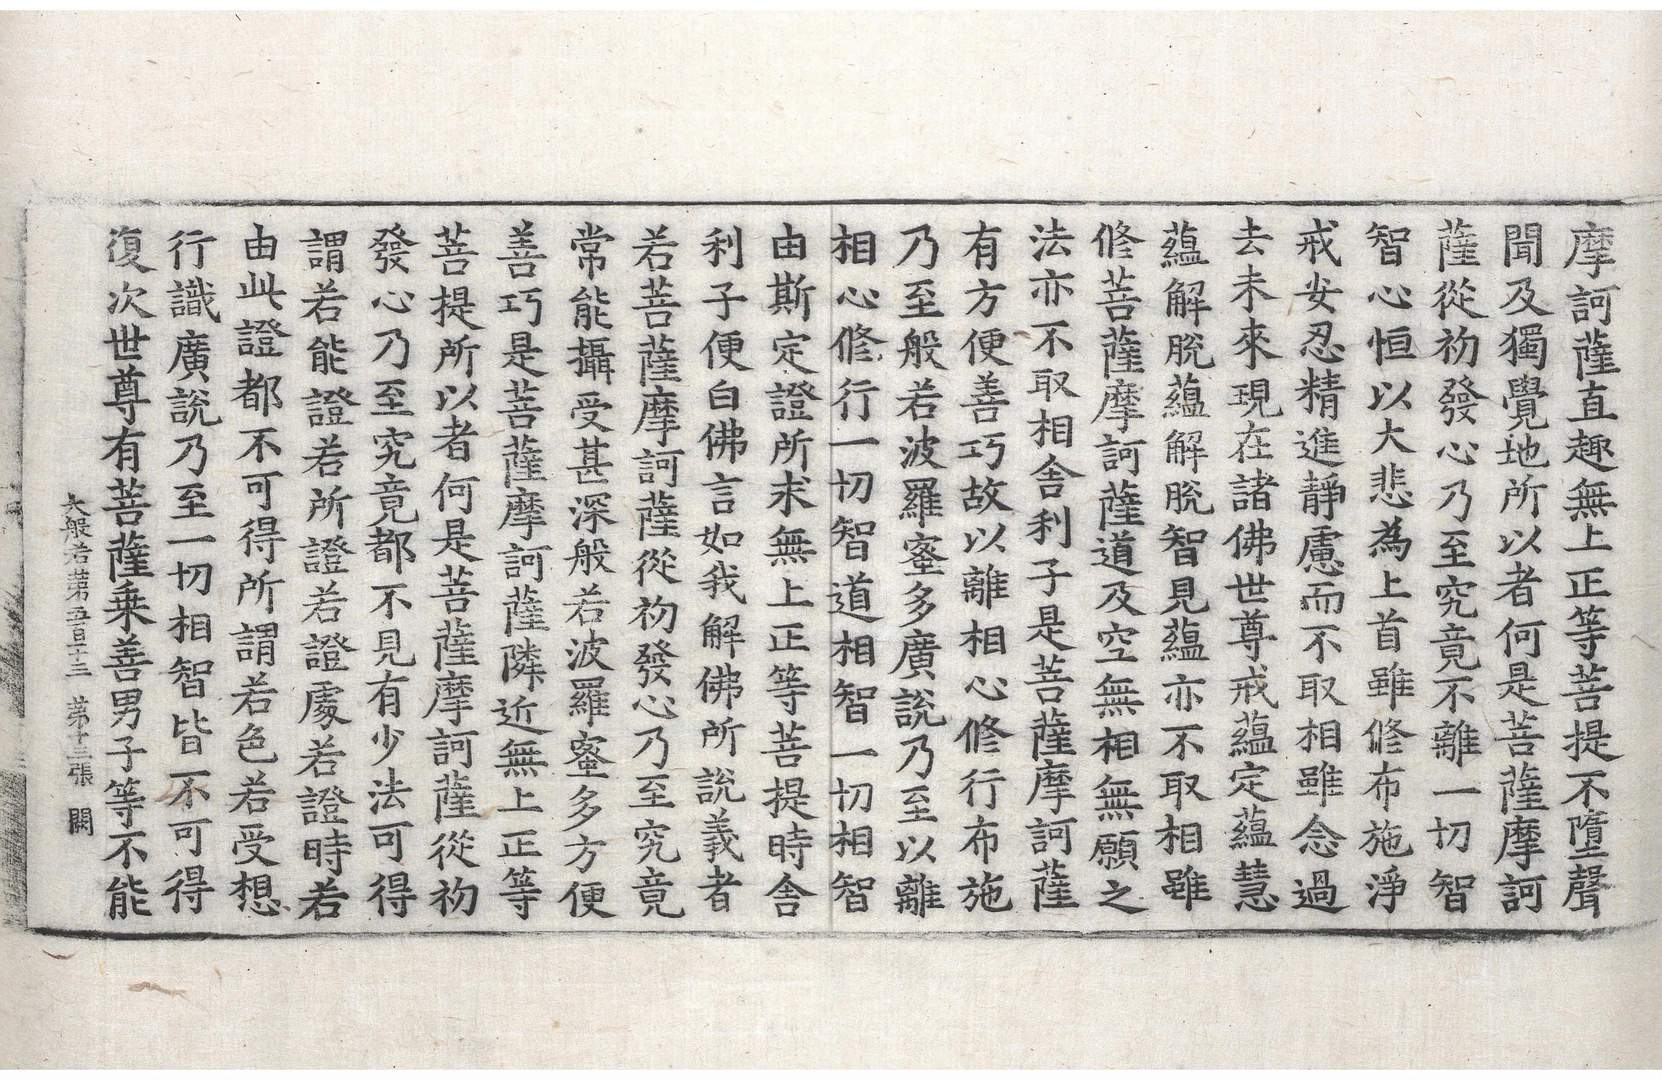 摩訶薩直趣無上正等菩提不墮聲
聞及獨覺地所以者何是菩薩摩訶
薩從初發心乃至究竟不離一切智
智心恒以大悲為上首雖修布施淨
戒安忍精進靜慮而不取相雖念過
去未來現在諸佛世尊戒蘊定蘊慧
蘊解脫蘊解脫智見蘊亦不取相雖
修菩薩摩訶薩道及空無相無願之
法亦不取相舍利子是菩薩摩訶薩
有方便善巧故以離相心修行布施
乃至般若波羅蜜多廣說乃至以離
相心修行一切智道相智一切相智
由斯定證所求無上正等菩提時舍
利子便白佛言如我解佛所說義者
若菩薩摩訶薩從初發心乃至究竟
常能攝受甚深般若波羅蜜多方便
善巧是菩薩摩訶薩隣近無上正等
菩提所以者何是菩薩摩訶薩從初
發心乃至究竟都不見有少法可得
謂若能證若所證若證處若證時若
由此證都不可得所謂若色若受想
行識廣說乃至一切相智皆不可得
復次世尊有菩薩乘善男子等不能
大般若第五百十三 第十三張 闕